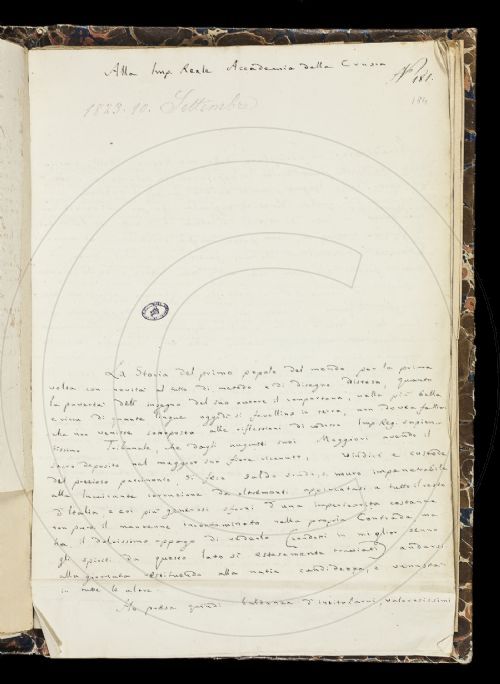 Alla Imp. Reale Accademia della Crusca
N° 181.
184
1823. 10. Settembre
La Storia del primo popolo del mondo per la prima
volta con novità di metodo e di disegno distesa, quanto
la povertà dell' ingegno del suo autore il comportava, nella più bella
e viva di quante lingue oggidì si favellino in terra, non dovea fallire
che non venisse sottoposta alle riflessioni di Imp. Reg. sapien-
tissimo Tribunale, che dagli augusti suoi Maggiori avendo il
sacro deposito nel maggior suo fiore ricevuto, vindice e custode
del prezioso patrimonio, si fece saldo scudo, e muro impenetrabile
alla corruzione da oltremonti a tutto il resto
d'Italia, e coi più generosi sforzi d'una imperturbata costanza
non pure il mantenne incontaminato nella propria Contrada, ma
ha il dolcissimo appago di vederlo (venuti in miglior senno
gli spiriti da questo lato sì traviati) andarsi
alla giornata restituendo alla natia candidezza, e
in tutte le altre.
Ho preso quindi baldanza d'intitolarvi, valorosissimi